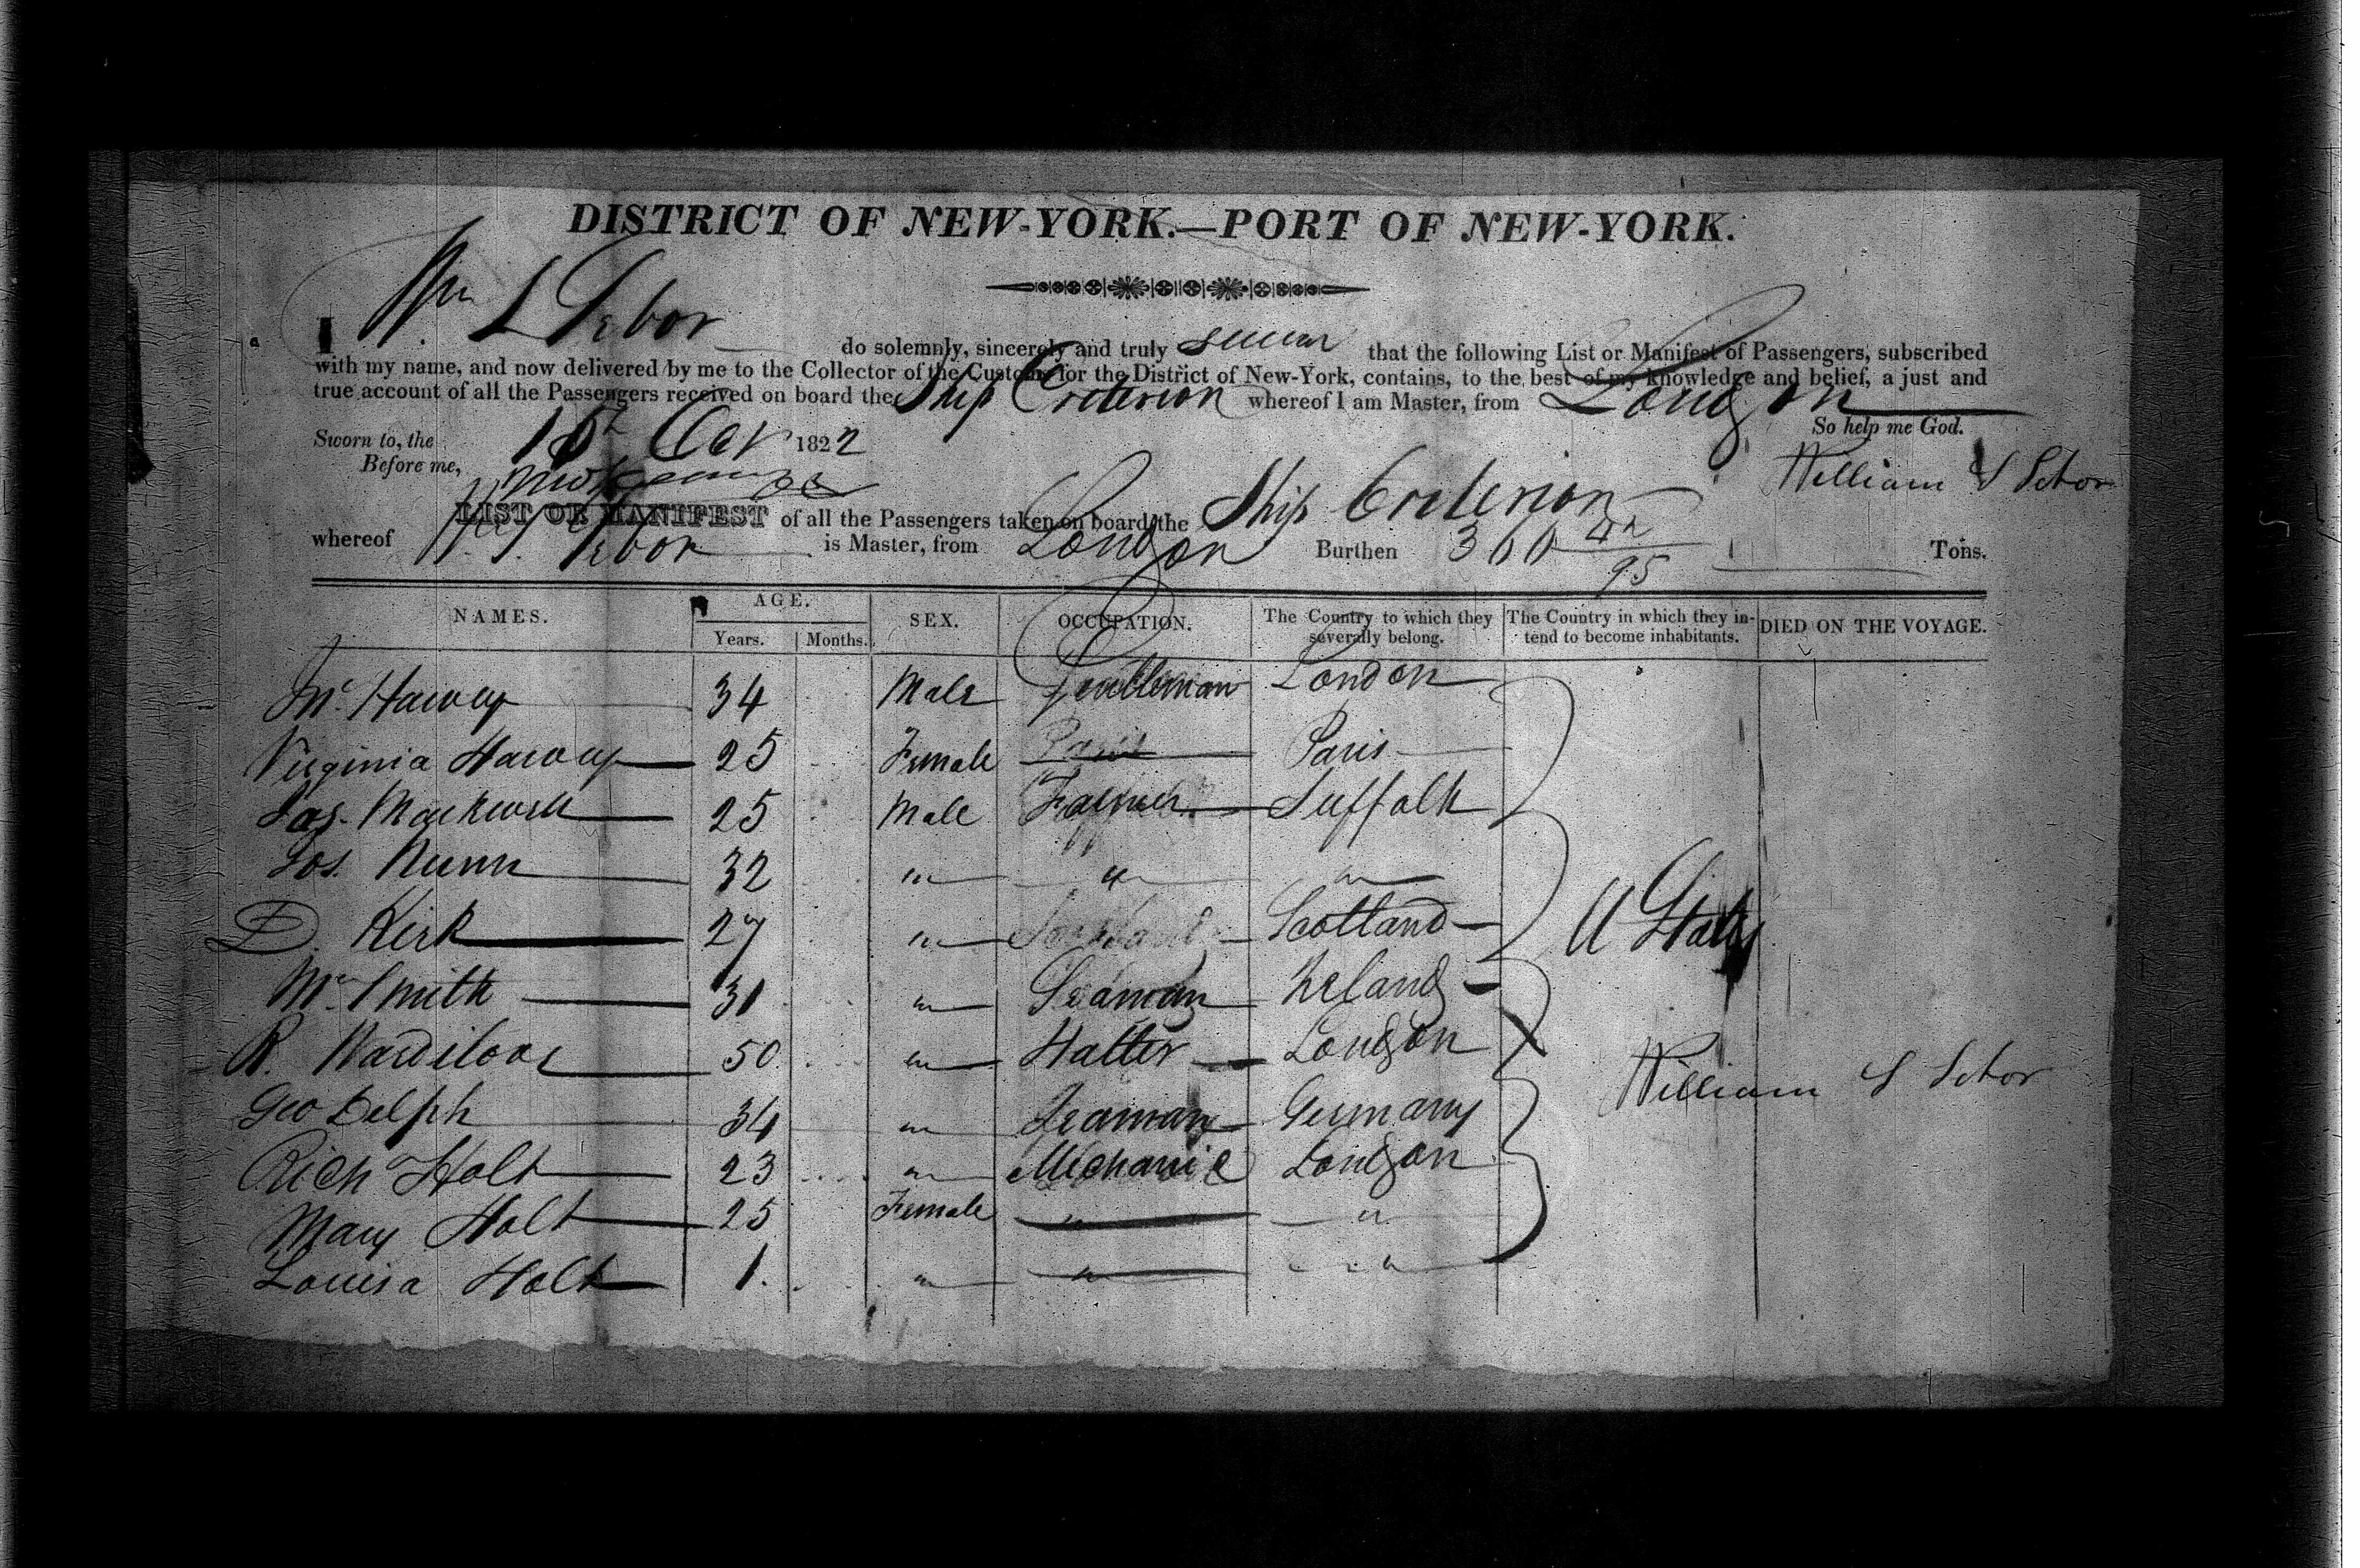 DISTRICT OF NEW-YORK.—PORT OF NEW-YORK.
I Wm S Sebor do solemnly, sincerely and truly swear that the following List or Manifest of Passengers, subscribed
with my name, and now delivered by me to the Collector of the Customs for the District of New-York, contains, to the best of my knowledge and belief, a just and
true account of all the Passengers received on board the Ship Criterion whereof I am Master, from London
So help me God.
Sworn to, the 1822
Before me,
William S Sebor
LIST OR MANIFEST of all the Passengers taken on board the Ship Criterion
whereof W. S. Sebor is Master, from London Burthen 95 Tons.
NAMES. AGE. Years. Months. SEX. OCCUPATION. The Country to which they severally belong. The Country in which they intend to become inhabitants. DIED ON THE VOYAGE.
Mr Harvey 34 Male Gentleman London
Virginia Harvey 25 Female Paris Paris
Jas. 25 Male Farmer Suffolk
Jos. Nunn 32 " " "
D. Kirk 27 " Scotland
Mr Smith 31 " Seaman Ireland
R. 50 " Hatter London
Geo Delph 34 " Seaman Germany
Richd Holt 23 " Mechanic London
Mary Holt 25 Female " "
Louisa Holt 1. " " "
U States
William S Sebor